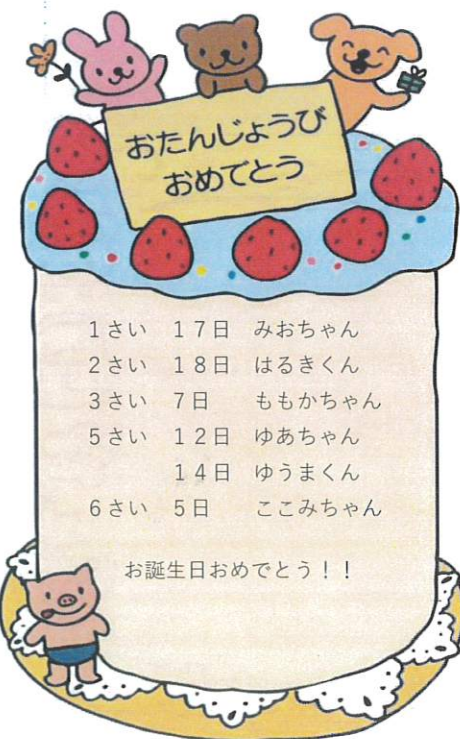 おたんじょうび
おめでとう
1さい　17日　みおちゃん
2さい　18日　はるきくん
3さい　7日　ももかちゃん
5さい　12日　ゆあちゃん
14日　ゆうまくん
6さい　5日　ここみちゃん
お誕生日おめでとう！！